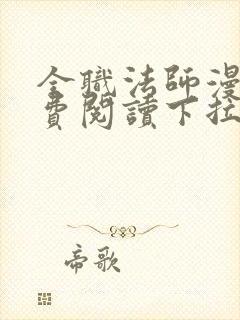 全職法師漫
費閱讀下拉
帝歌